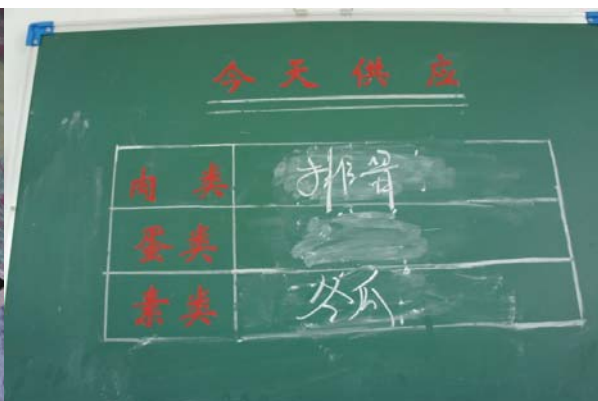 今天供应
肉类 排骨
蛋类
素类 冬瓜